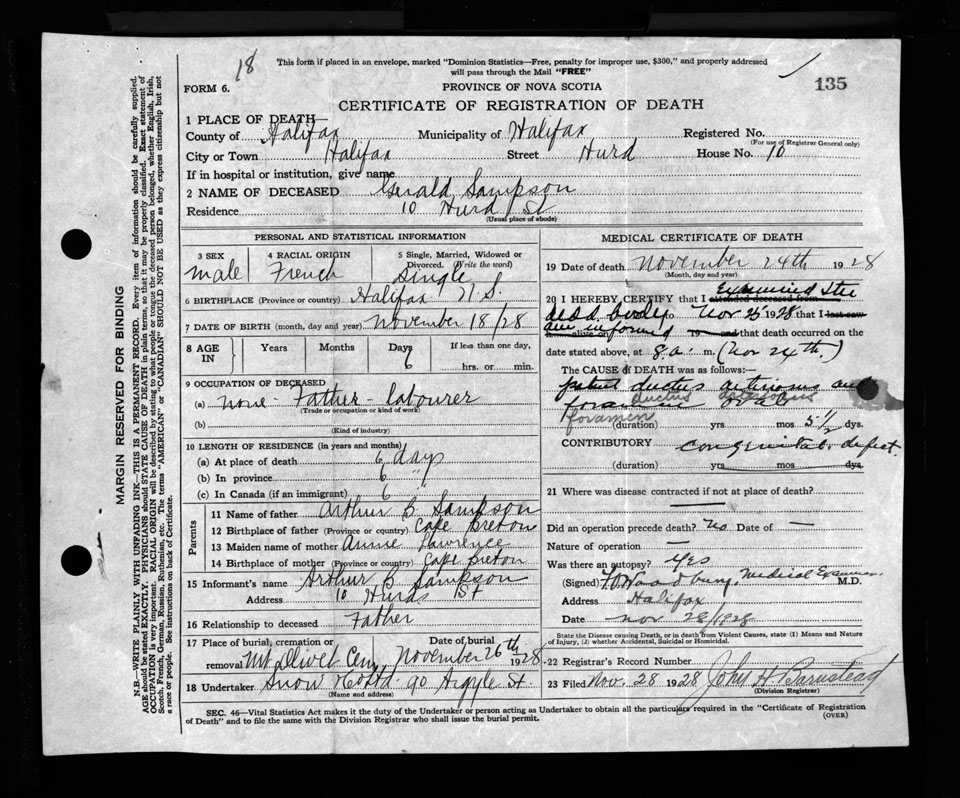 18
This form if placed in an envelope, marked "Dominion Statistics—Free, penalty for improper use, $300," and properly addressed
will pass through the Mail "FREE"
135
FORM 6.
PROVINCE OF NOVA SCOTIA
CERTIFICATE OF REGISTRATION OF DEATH
1 PLACE OF DEATH—
County of Halifax Municipality of Halifax Registered No.
(For use of Registrar General only)
City or Town Halifax Street Hurd House No. 10
If in hospital or institution, give name
2 NAME OF DECEASED Gerald Sampson
Residence 10 Hurd St
(Usual place of abode)
MARGIN RESERVED FOR BINDING
N.B.—WRITE PLAINLY WITH UNFADING INK—THIS IS A PERMANENT RECORD. Every item of information should be carefully supplied.
AGE should be stated EXACTLY. PHYSICIANS should STATE CAUSE OF DEATH in plain terms, so that it may be properly classified. Exact statement of
OCCUPATION is very important. RACIAL ORIGIN will be described by stating to what people or tongue the deceased person belonged, whether English, Irish,
Scotch, French, German, Russian, Ruthenian, etc. The terms "AMERICAN" or "CANADIAN" SHOULD NOT BE USED as they express citizenship but not
a race or people. See instructions on back of Certificate.
PERSONAL AND STATISTICAL INFORMATION
3 SEX 4 RACIAL ORIGIN 5 Single, Married, Widowed or
Divorced. (Write the word)
male French Single
6 BIRTHPLACE (Province or country) Halifax N.S.
7 DATE OF BIRTH (month, day and year) November 18/28
8 AGE IN Years Months Days If less than one day,
6 hrs. or min.
9 OCCUPATION OF DECEASED
(a) none - Father - labourer
(Trade or occupation or kind of work)
(b)
(Kind of industry)
10 LENGTH OF RESIDENCE (in years and months)
(a) At place of death 6 days
(b) In province 6 "
(c) In Canada (if an immigrant) 6 "
Parents
11 Name of father Arthur B Sampson
12 Birthplace of father (Province or country) Cape Breton
13 Maiden name of mother Annie Lawrence
14 Birthplace of mother (Province or country) Cape Breton
15 Informant's name Arthur B Sampson
Address 10 Hurds St
16 Relationship to deceased Father
17 Place of burial, cremation or Date of burial
removal Mt Olivet Cem November 26th 1928
18 Undertaker Snow Co Ltd 90 Argyle St.
(Name and address)
MEDICAL CERTIFICATE OF DEATH
19 Date of death November 24th 1928
(Month, day and year)
20 I HEREBY CERTIFY that I attended deceased from Examined the
dead body Nov 25 1928 that I last saw
h alive on am informed 19 and that death occurred on the
date stated above, at 8 a. m. (Nov 24th.)
The CAUSE of DEATH was as follows:—
patent ductus arteriosus and
ductus arteriosus
foramen
foramen
(duration) yrs mos 5½ dys.
CONTRIBUTORY congenital defect.
(duration) yrs mos dys.
21 Where was disease contracted if not at place of death?
—
Did an operation precede death? No Date of —
Nature of operation —
Was there an autopsy? Yes
(Signed) Medical Examiner M.D.
Address Halifax
Date Nov 28/1928
State the Disease causing Death, or in death from Violent Causes, state (1) Means and Nature
of Injury, (2) whether Accidental, Suicidal or Homicidal.
22 Registrar's Record Number
23 Filed Nov. 28 1928 John H Barnstead
(Division Registrar)
SEC. 46—Vital Statistics Act makes it the duty of the Undertaker or person acting as Undertaker to obtain all the particulars required in the "Certificate of Registration
of Death" and to file the same with the Division Registrar who shall issue the burial permit.
(OVER)